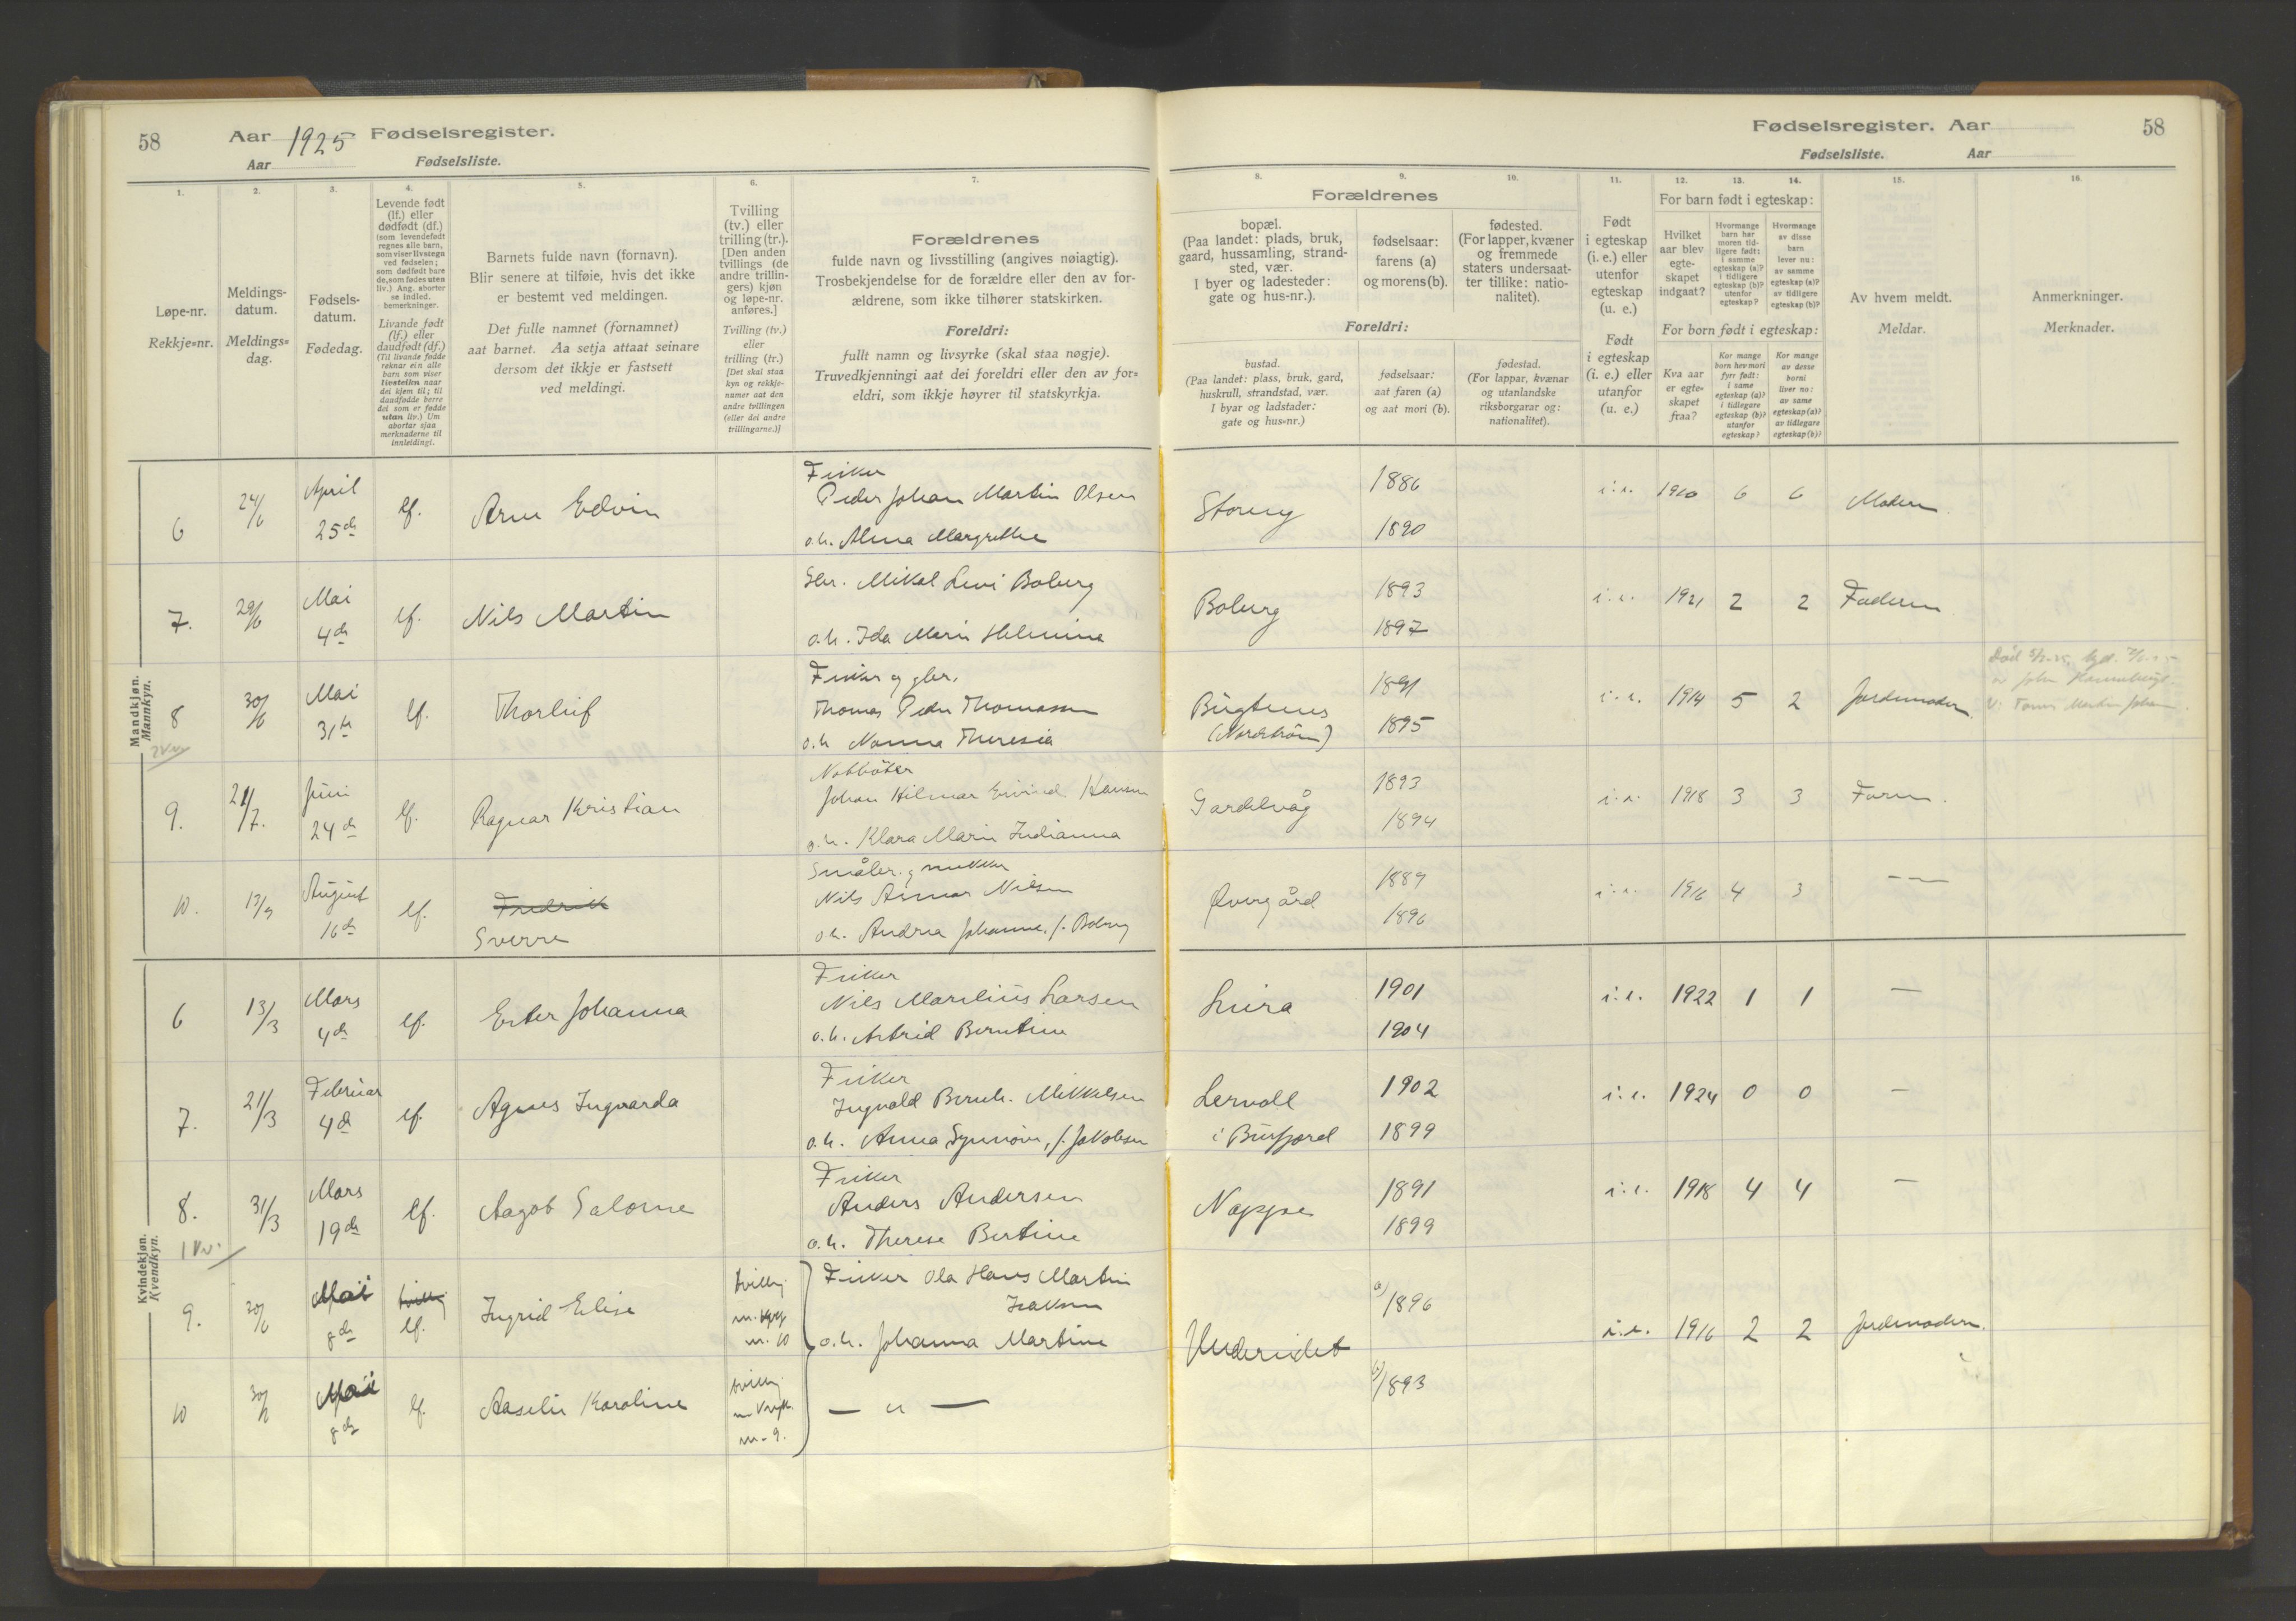 58 Aar 1925 Fødselsregister.
Aar Fødselsliste.
Fødselsregister. Aar 58
Fødselsliste. Aar
1. 2. 3. 4. 5. 6. 7.
8. 9. 10. 11. 12. 13. 14. 15. 16.
Løpe-nr.
Rekkje=nr.
Meldings-
datum.
Meldings=
dag.
Fødsels-
datum.
Fødedag.
Levende født
(lf.) eller
dødfødt (df.)
(som levendefødt
regnes alle barn,
som viser livstegn
ved fødselen;
som dødfødt bare
de, som fødes uten
liv.) Ang. aborter
se indled.
bemerkninger.
Livande født
(lf.) eller
daudfødt (df.)
(Til livande fødde
reknar ein alle
born som viser
livsteikn naar
dei kjem til; til
daudfødde berre
dei som er fødde
utan liv.) Um
abortar sjaa
merknaderne til
innleidingi.
Barnets fulde navn (fornavn).
Blir senere at tilføie, hvis det ikke
er bestemt ved meldingen.
Det fulle namnet (fornamnet)
aat barnet. Aa setja attaat seinare
dersom det ikkje er fastsett
ved meldingi.
Tvilling
(tv.) eller
trilling (tr.).
[Den anden
tvillings (de
andre trillin-
gers) kjøn
og løpe-nr.
anføres.]
Tvilling (tv.)
eller
trilling (tr.)
[Det skal staa
kyn og rekkje-
numer aat den
andre tvillingen
(eller dei andre
trillingarne.)]
Forældrenes
fulde navn og livsstilling (angives nøiagtig).
Trosbekjendelse for de forældre eller den av for-
ældrene, som ikke tilhører statskirken.
Foreldri:
fullt namn og livsyrke (skal staa nøgje).
Truvedkjenningi aat dei foreldri eller den av for=
eldri, som ikkje høyrer til statskyrkja.
Forældrenes
bopæl.
(Paa landet: plads, bruk,
gaard, hussamling, strand-
sted, vær.
I byer og ladesteder:
gate og hus-nr.).
fødselsaar:
farens (a)
og morens (b).
fødested.
(For lapper, kvæner
og fremmede
staters undersaat-
ter tillike: natio-
nalitet).
Foreldri:
bustad.
(Paa landet: plass, bruk, gard,
huskrull, strandstad, vær.
I byar og ladstader:
gate og hus=nr.)
fødselsaar:
aat faren (a)
og aat mori (b).
fødestad.
(For lappar, kvænar
og utanlandske
riksborgarar og:
nationalitet).
Født
i egteskap
(i. e.) eller
utenfor
egteskap
(u. e.)
Født
i egteskap
(i. e.) eller
utanfor
(u. e.)
For barn født i egteskap:
Hvilket
aar blev
egte-
skapet
indgaat?
Hvormange
barn har
moren tid-
ligere født:
i samme
egteskap (a)?
i tidligere
egteskap (b)?
utenfor
egteskap?
Hvormange
av disse
barn
lever nu:
av samme
egteskap (a)?
av tidligere
egteskap (b)?
For born født i egteskap:
Kva aar
er egte-
skapet
fraa?
Kor mange
born hev mori
fyrr født:
i same
egteskap (a)?
i tidlegare
egteskap (b)?
utanfor
egteskap?
Kor mange
av desse
borni
liver no:
av same
egteskap (a)?
av tidlegare
egteskap (b)?
Av hvem meldt.
Meldar.
Anmerkninger.
Merknader.
Mandkjøn.
Mannkyn.
6 24/6 April 25de lf. Arne Edvin
Fisker
Peder Johan Martin Olsen
o.h. Alma Margrethe
Storeng 1886 1890 i.e. 1910 6 6 Moderen
7. 29/6 Mai 4de lf. Nils Martin
Gbr. Mikal Levi Boberg
o.h. Ida Marie Helmine
Boberg 1893 1897 i.e. 1921 2 2 Faderen
8 30/6 Mai 31te lf. Thorleif
Fisker og gbr.
Thomas Peder Thomassen
o.h. Nanna Theresia
Bugtenes
(Nordstrøm) 1891 1895 i.e. 1914 5 2 Jordemoderen
9. 21/7. Juni 24de lf. Ragnar Kristian
Notbøter
Johan Hilmar Eivind Hansen
o.h. Klara Marie Indianna
Gardelvåg 1893 1894 i.e. 1918 3 3 Faren.
10. 13/9 August 16de lf. Fredrik
Sverre
Småbr. og snekker
Nils Asmar Nilsen
o.h. Andrea Johanne, f. Boberg
Øvergård 1889 1896 i.e. 1916 4 3 — —
Kvindekjøn.
Kvendkyn.
6 13/3 Mars 4de lf. Ester Johanna
Fisker
Nils Marelius Larsen
o.h. Astrid Berntine
Luira 1901 1904 i.e. 1922 1 1 —
7. 21/3 Februar 4de lf. Agnes Ingvarda
Fisker
Ingvald Bernh. Mikkelsen
o.h. Anna Synnøve, f. Jakobsen
Lervoll
i Burfjord 1902 1899 i.e. 1924 0 0 —
8. 31/3 Mars 19de lf. Aagot Salome
Fisker
Anders Andersen
o.h. Therese Bertine
Noppe 1891 1899 i.e. 1918 4 4 —
9. 30/6 Mai 8de lf. Ingrid Elise
tvilling
m. 10
Fisker Ola Hans Martin
Isaksen
o.h. Johanna Martine
Undereidet a) 1896 b) 1893 i.e. 1916 2 2 Jordemoderen.
10 30/6 Mai 8de lf. Aaselie Karoline
tvilling
m. 9.
— " —